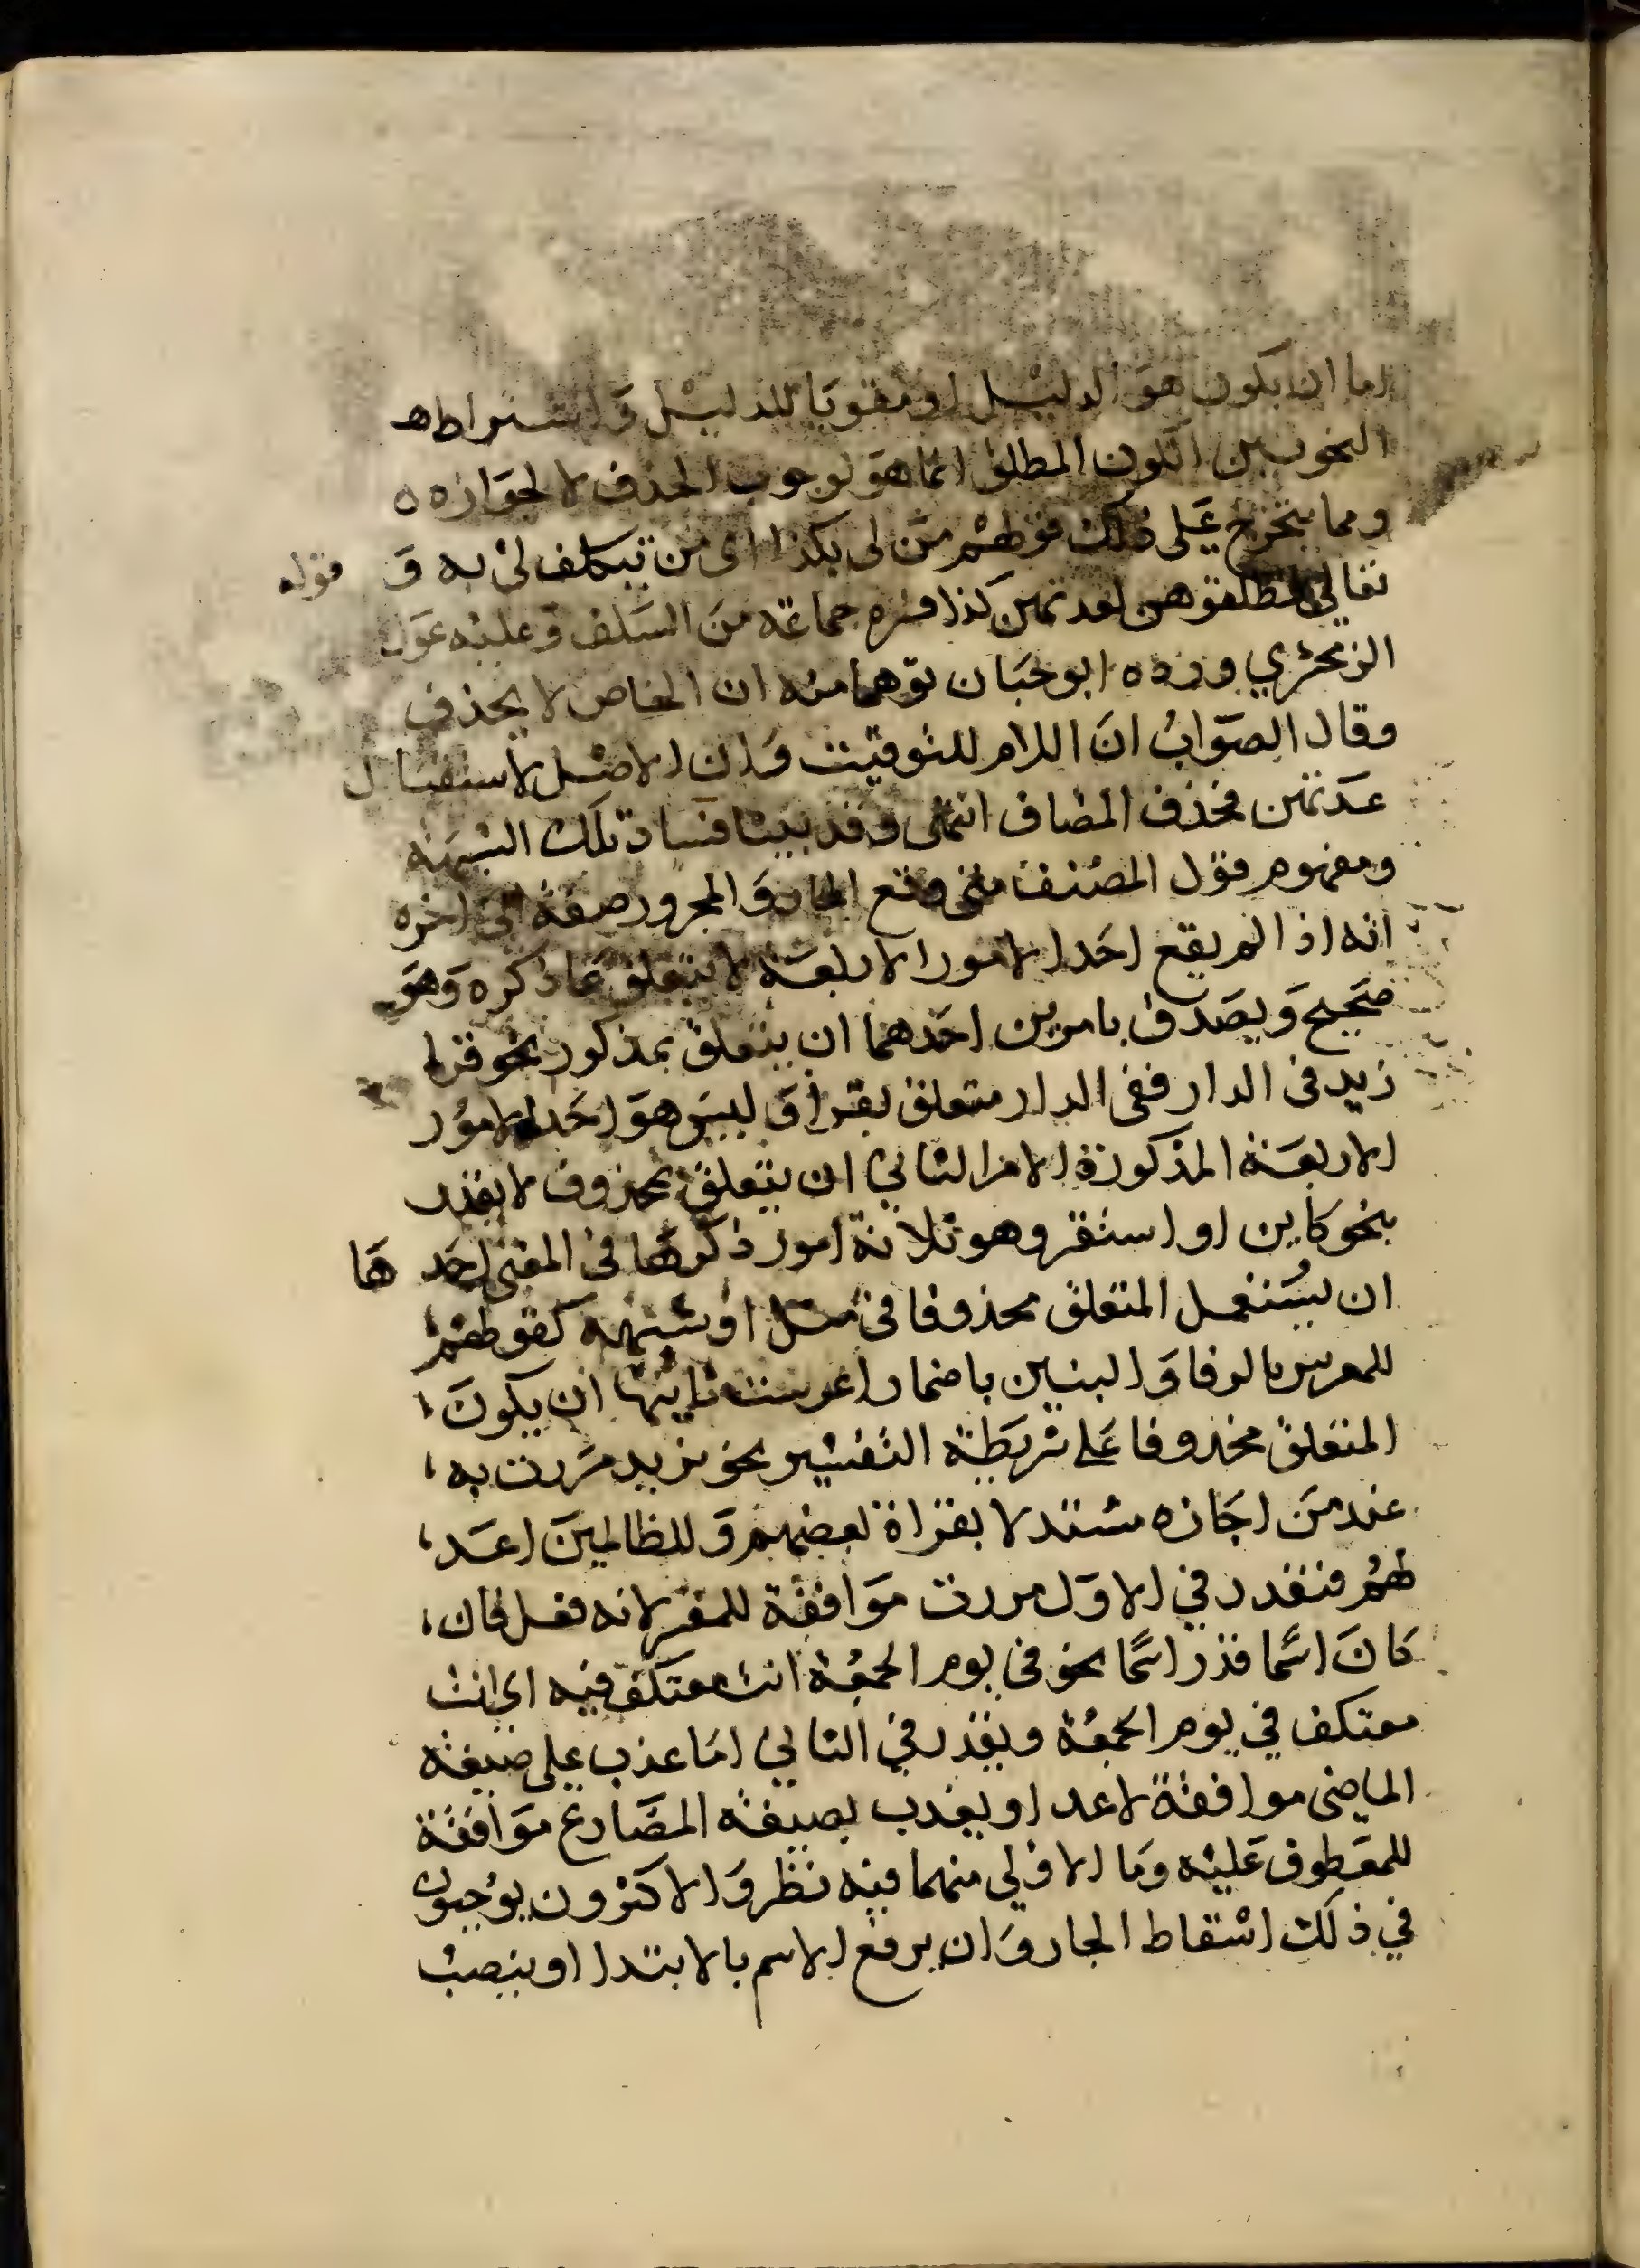 اما ان يكون هو الدليل او مقويا للدليل واشتراط ه
النحويين الكون المطلق انما هو لوجوب الحذف لا لجوازه ه
ومما يتخرج على ذلك قولهم من لى بكذا اى من يتكلف لى به و قوله
تعالى فطلقوهن لعدتهن كذا فسره جماعة من السلف وعليه عول
الزمخشري ورده ابو حيان توهما منه ان الخاص لا يحذف
وقال الصواب ان اللام للتوقيت وان الاصل لاستقبال
عدتهن فحذف المضاف انتهى وقد بينا فساد تلك الشبهة
ومفهوم قول المصنف متى وقع الجار والمجرور صفة الى اخره
انه اذا لم يقع احد الامور الاربعة لا يتعلق بما ذكره وهو
صحيح ويصدق بامرين احدهما ان يتعلق بمذكور نحو قرا
زيد فى الدار ففى الدار متعلق بقرا وليس هو احد الامور
الاربعة المذكورة الامر الثاني ان يتعلق بمحذوف لا يقدر
بنحو كاين او استقر وهو ثلاثة امور ذكرها فى المغنى احد ها
ان يستعمل المتعلق محذوفا فى مثل او شبهه كقولهم
للمعرس بالرفا والبنين باضمار اعرست ثانيها ان يكون
المتعلق محذوفا على شريطة التفسير نحو بزيد مررت به
عند من اجازه مستدلا بقراة بعضهم وللظالمين اعد
لهم فنقدر في الاول مررت موافقة للمفسر لانه فعل فان
كان اسما قدر اسما نحو فى يوم الجمعة انت معتكف فيه اي انت
معتكف في يوم الجمعة ويقدر في الثاني اما عذب على صيغة
الماضى موافقة لاعد او يعذب بصيغة المضارع موافقة
للمعطوف عليه وما الاولي منهما فيه نظر والاكثرون يوجبون
في ذلك اسقاط الجار وان يرفع الاسم بالابتدا او ينصب